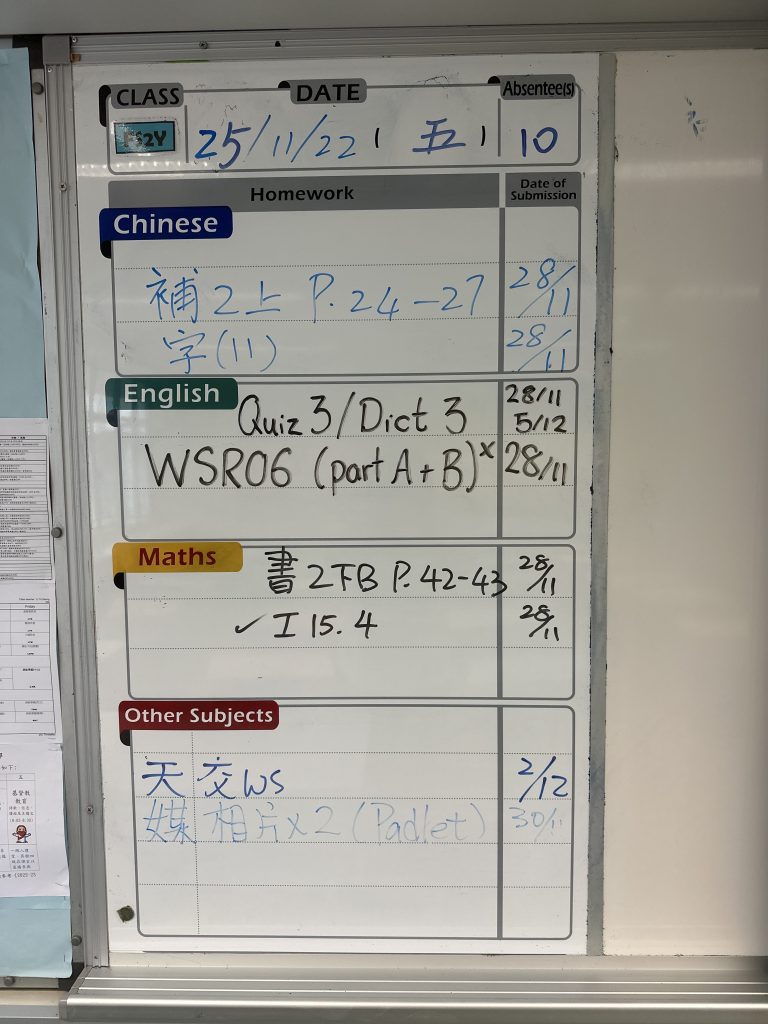 CLASS DATE Absentee(s)
FS2Y 25/11/22 ( 五 ) 10
Homework Date of Submission
Chinese
補 2上 P. 24-27 28/11
字(11) 28/11
English
Quiz 3/Dict 3 28/11 5/12
WSR06 (part A+B)x 28/11
Maths
書 2TB P. 42-43 28/11
✓ I 15.4 28/11
Other Subjects
天 交WS 2/12
媒 相片x2 (Padlet) 30/11
Friday
五
基督教
教育